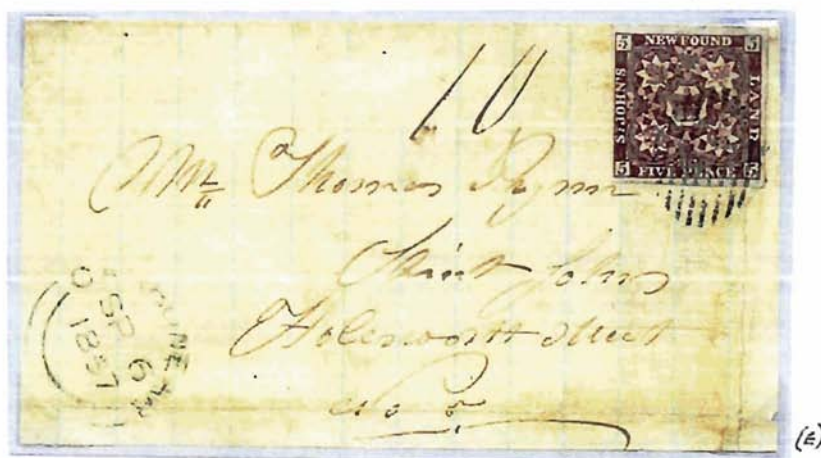 10
5 NEWFOUND 5
ST JOHN'S
LAND
5 FIVE PENCE 5
Mr Thomas
Saint Johns
Holesworth Street
No 5
SP 6
1857
(E)